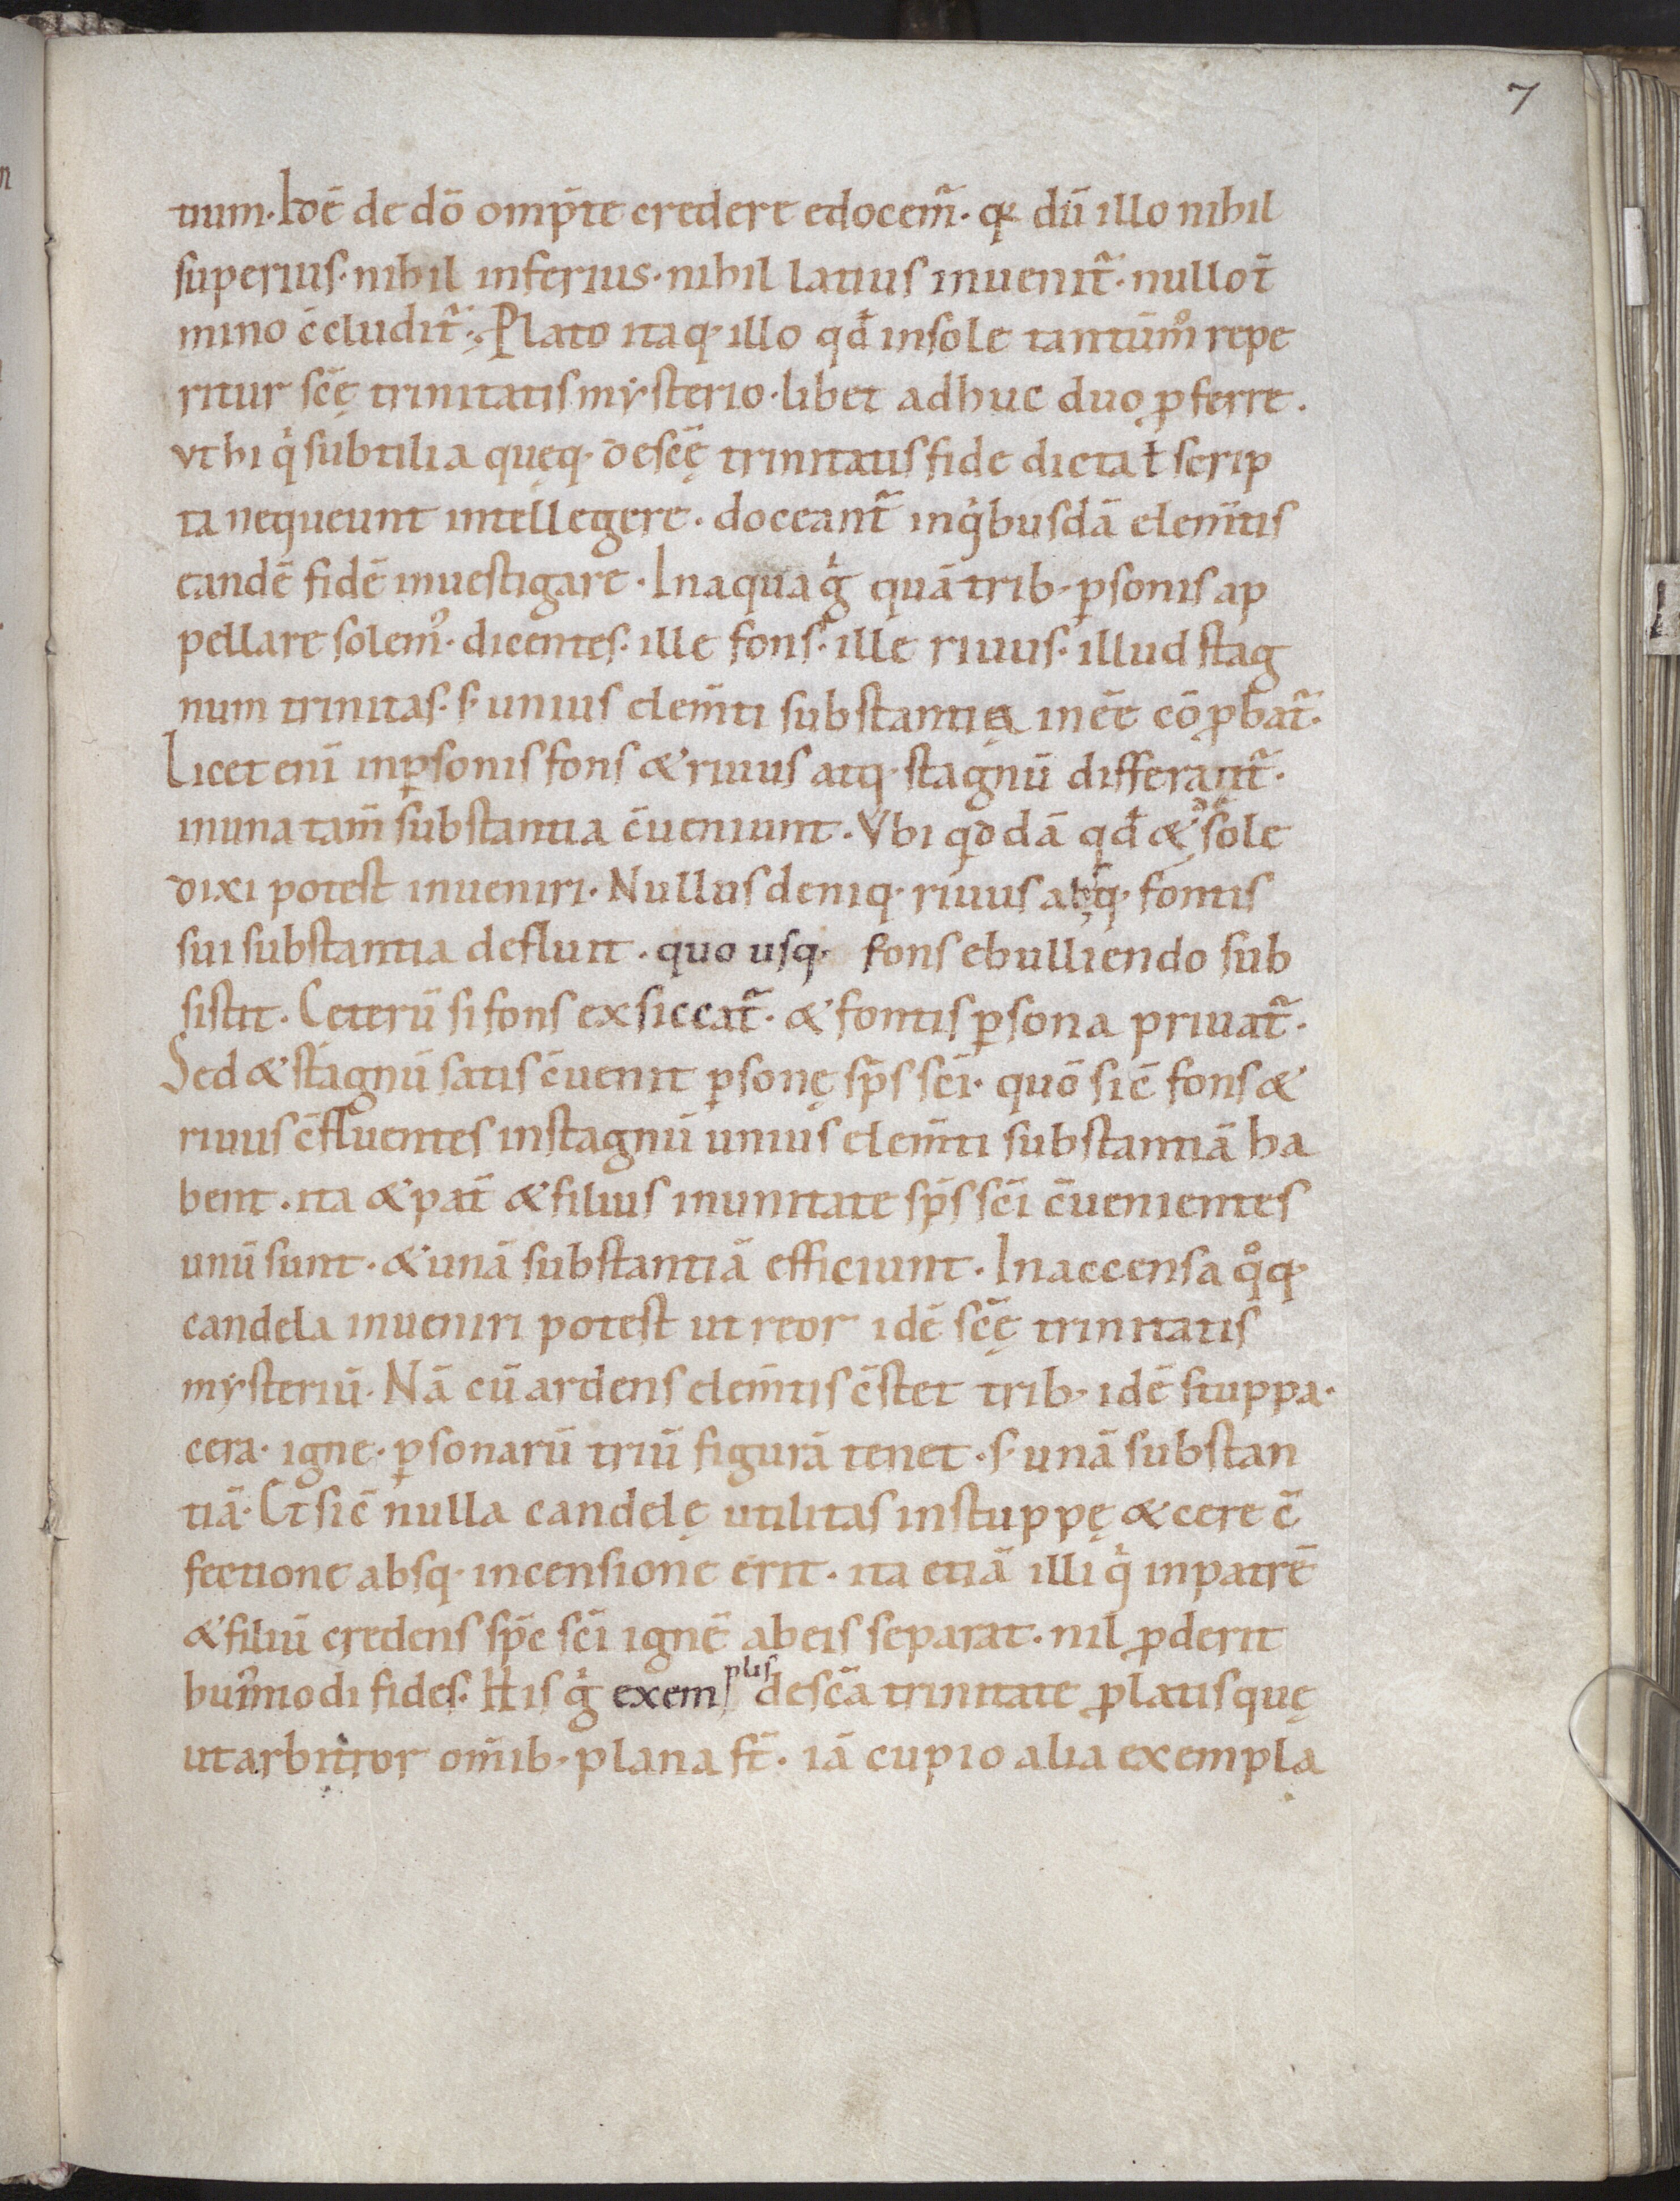 7
tium. hoc ē de dō omp̄te credere edocem̃. q̇ dū illo nihil
superius. nihil inferius. nihil latius inuenit̃. nullo t̄
mino c̄cludit̃. Plato itaq. illo qđ insole tantūm̊ repe
ritur sc̄ę trinitatis mysterio. libet adhuc duo ꝓferre.
vt hi q̇ subtilia quęq. de sc̄ę trinitatis fide dicta ł scrip
ta nequeunt intellegere. doceant̃ inq̇busdā elem̄tis
eandē fidē inuestigare. In aqua g̊ quā trib. ꝑsonis ap
pellare solem᾽. dicentes. ille fons. ille riuus. illud stag
num trinitas. s. unius elem̄ti substantia inēē cōꝓbat̃.
Licet enī inꝑsonis fons & riuus atq. stagnū differant̃.
inuna tam̄ substantia c̄ueniunt. Vbi qd̄dā qđ & ī sole
dixi potest inueniri. Nullus deniq. riuus absq. fontis
sui substantia defluit. quo usq. fons ebulliendo sub
sistit. Ceterū si fons exsiccat̃. & fontis ꝑsona priuat̃.
Sed & stagnū satis c̄uenit ꝑsonę sp̄s sc̄i. quō sic̄ fons &
riuus c̄fluentes instagnū unius elem̄ti substantiā ha
bent. ita & pat̄ & filius inunitate sp̄s sc̄i c̄uenientes
unū sunt. & unā substantiā efficiunt. In accensa q̊q.
candela inueniri potest ut reor idē sc̄ę trinitatis
mysteriū. Nā cū ardens elem̄tis c̄stet trib. idē stuppa.
cera. igne. ꝑsonarū triū figurā tenet. s. unā substan
tiā. Et sic̄ nulla candelę utilitas in stuppę & cere c̄
fectione absq. incensione erit. ita etiā illi q̇ inpatrē
& filiū credens sp̄c sc̄i ignē abeis separat. nil ꝓderit
hui᾽modi fides. His g̊ exemplis de sc̄a trinitate ꝓlatis quę
ut arbitror om̄ib. plana st̄. iā cupio alia exempla